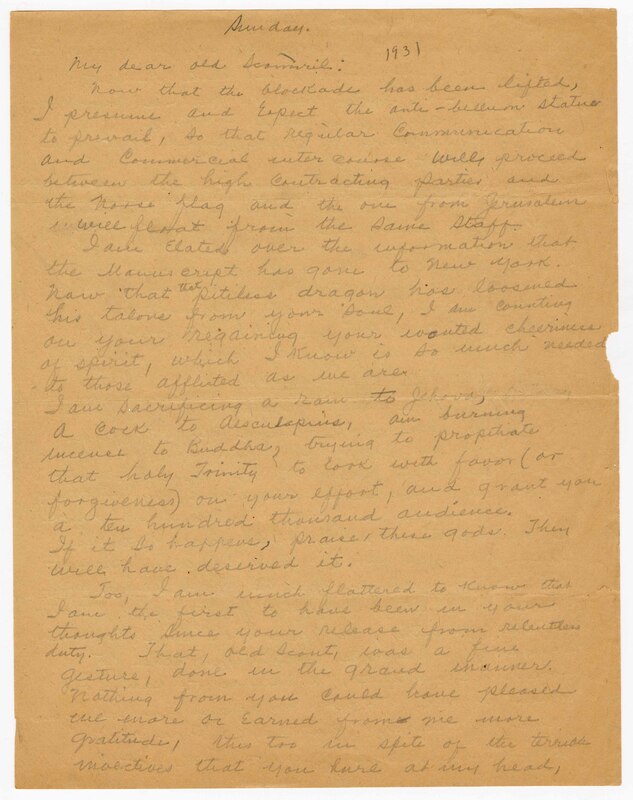 Sunday.
1931
My dear old Scoundril:
Now that the blockade has been lifted,
I presume and Expect the anti-bellum status
to prevail, so that regular Communication
and Commercial intercourse will proceed
between the high Contracting Parties and
the Norse flag and the one from Jerusalem
will float from the same staff.
I am Elated over the information that
the Manuscript has gone to New York.
Now that that pitiless dragon has loosened
his talons from your soul, I am counting
on your regaining your wonted cheeriness
of spirit, which I know is so much needed
to those afflicted as we are.
I am sacrificing a ram to Jehova,
a cock to Aesculapius, am burning
incense to Buddha, trying to propitiate
that holy Trinity to look with favor (or
forgiveness) on your effort, and grant you
a ten hundred thousand audience.
If it so happens, praise these gods. They
will have deserved it.
Too, I am much flattered to know that
I am the first to have been in your
thoughts since your release from relentless
duty. That, old Scout, was a fine
gesture, done in the grand manner.
Nothing from you could have pleased
me more or Earned from me more
gratitude, this too in spite of the terrible
invectives that you hurl at my head,